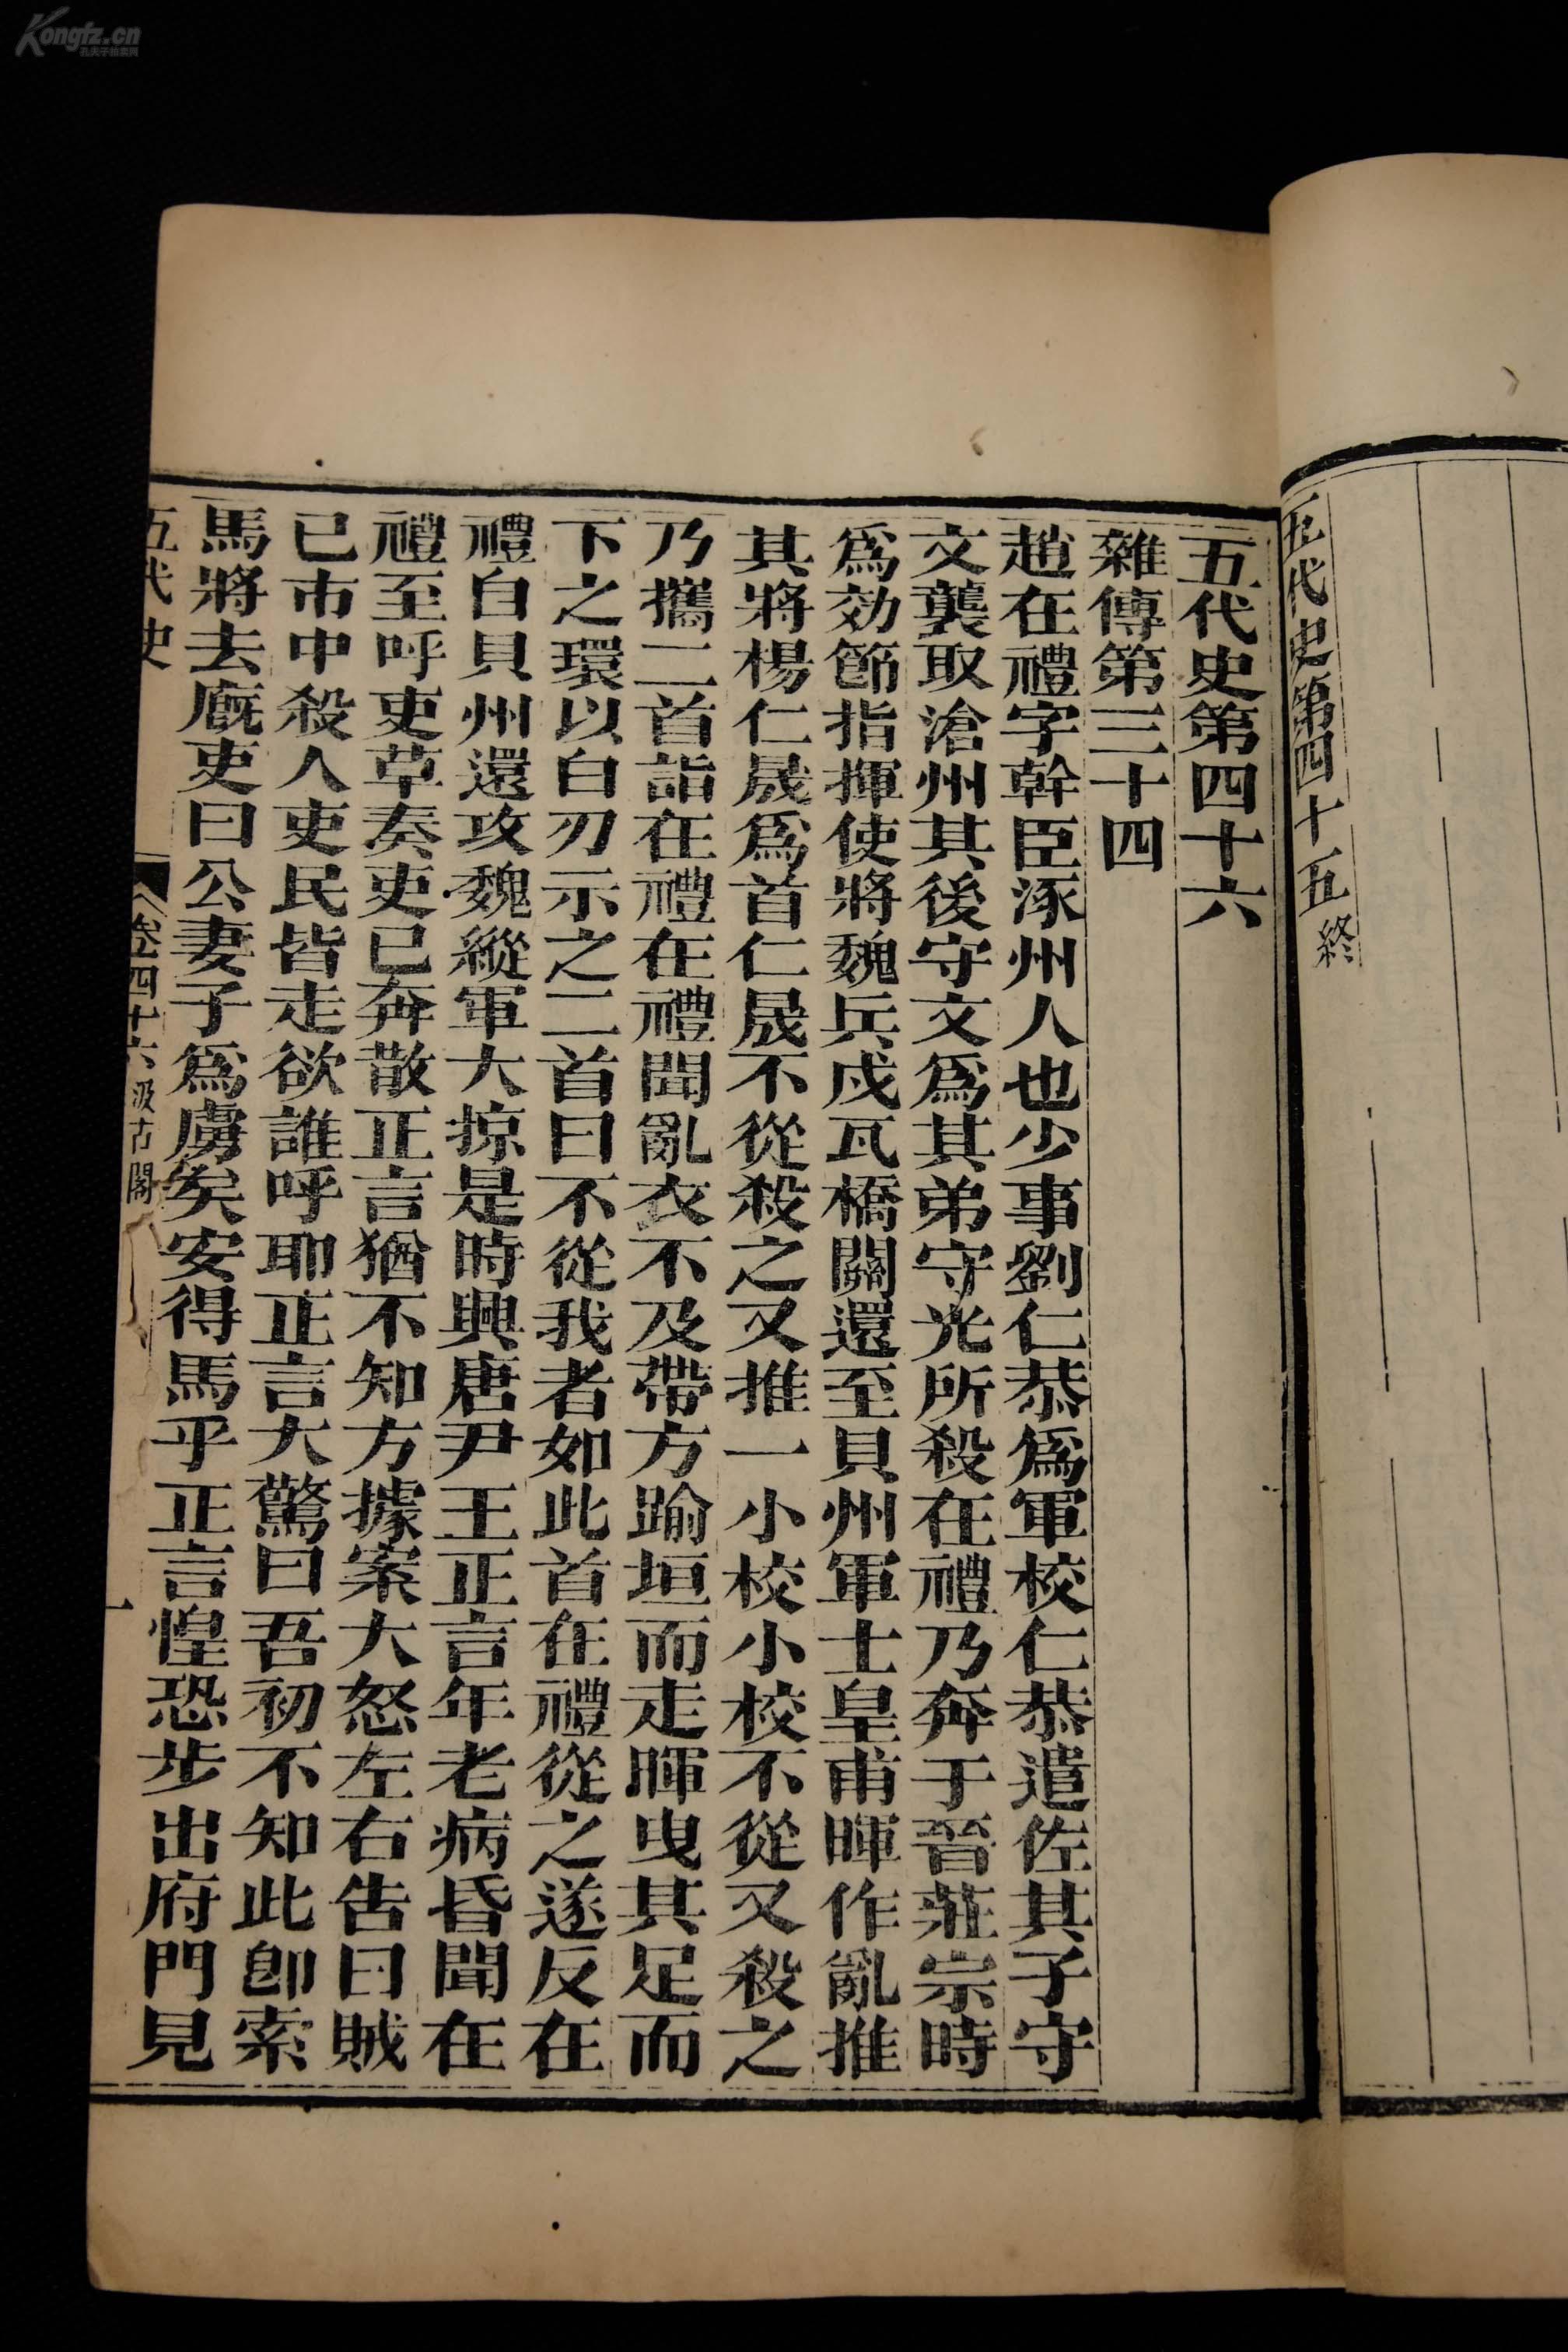 五代史第四十五終
五代史第四十六
雜傳第三十四
趙在禮字幹臣涿州人也少事劉仁恭爲軍校仁恭遣佐其子守
文襲取滄州其後守文爲其弟守光所殺在禮乃奔于晉莊宗時
爲効節指揮使將魏兵戍瓦橋關還至貝州軍士皇甫暉作亂推
其將楊仁晟爲首仁晟不從殺之又推一小校小校不從又殺之
乃攜二首詣在禮在禮聞亂衣不及帶方踰垣而走暉曳其足而
下之環以白刃示之二首曰不從我者如此首在禮從之遂反在
禮自貝州還攻魏縱軍大掠是時興唐尹王正言年老病昏聞在
禮至呼吏草奏吏已奔散正言猶不知方據案大怒左右告曰賊
已市中殺人吏民皆走欲誰呼耶正言大驚曰吾初不知此卽索
馬將去廄吏曰公妻子爲虜矣安得馬乎正言惶恐步出府門見
五代史
卷四十六
汲古閣
一
Kongfz.cn
孔夫子拍卖网